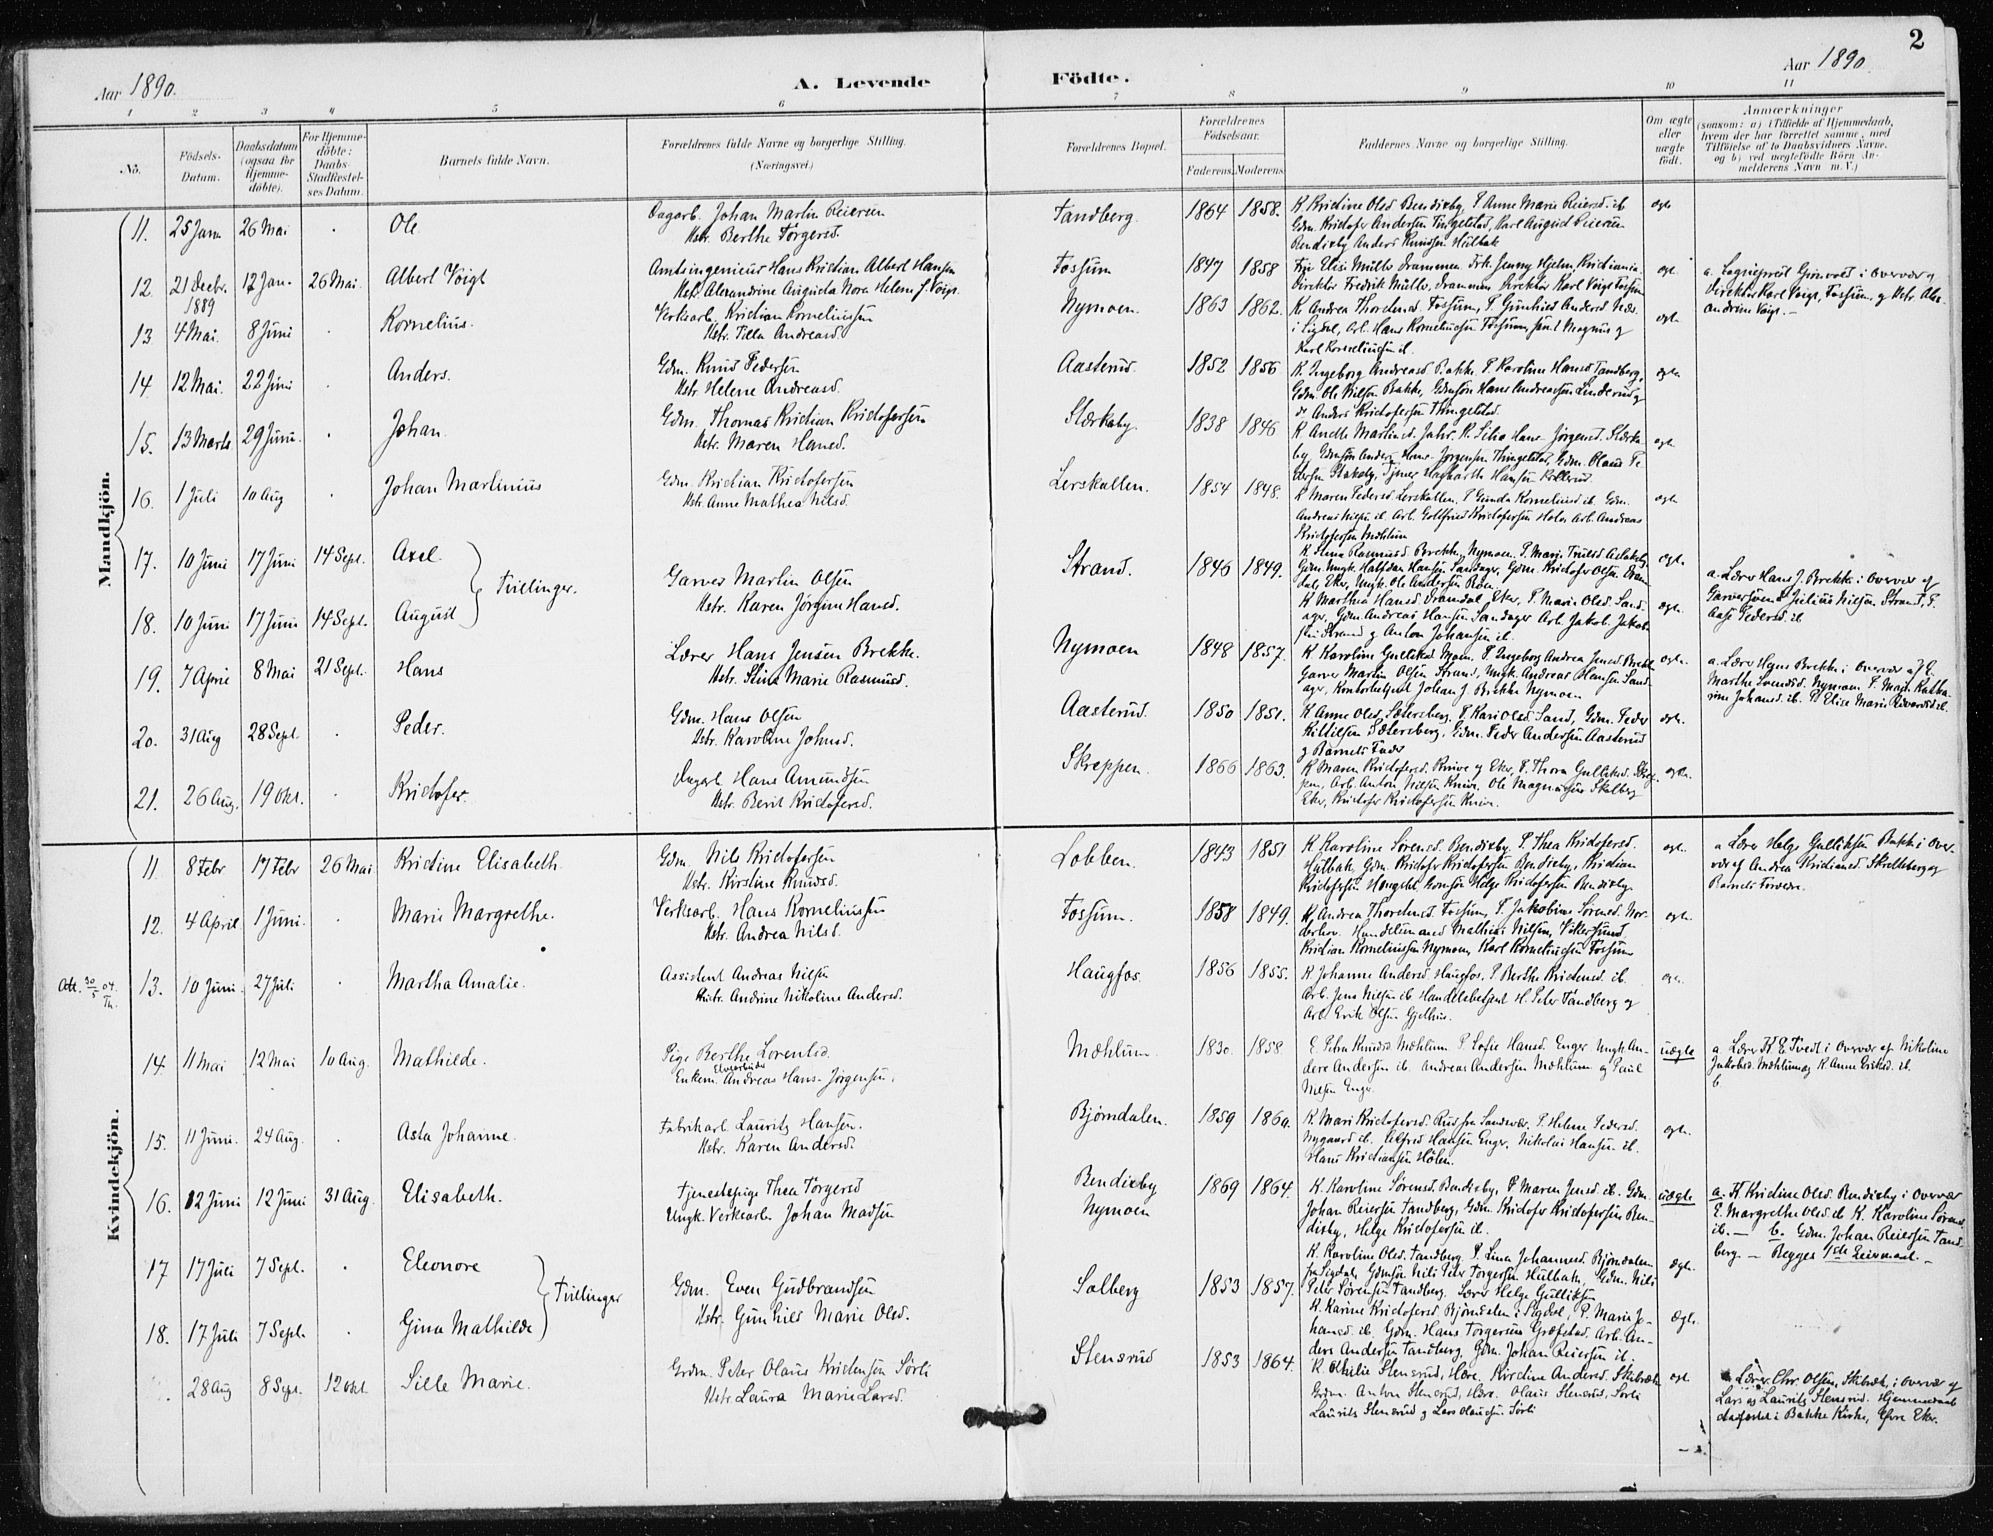 2
Aar 1890.
A. Levende Födte.
Aar 1890.
1 2 3 4 5 6 7 8 9 10 11
No.
Födsels-Datum.
Daabsdatum (ogsaa for Hjemme-döbte).
For Hjemme-döbte: Daabs-Stadfæstel-ses Datum.
Barnets fulde Navn.
Forældrenes fulde Navne og borgerlige Stilling. (Næringsvei.)
Forældrenes Bopæl.
Forældrenes Födselsaar.
Faderens. Moderens.
Faddernes Navne og borgerlige Stilling.
Om ægte eller uægte födt.
Anmærkninger
(saasom: a) i Tilfælde af Hjemmedaab,
hvem der har forrettet samme, med
Tilföielse af to Daabsvidners Navne,
og b) ved uægtefödte Börn An-
melderens Navn m. V.)
Mandkjön.
11. 25 Janr 26 Mai . Ole
Dagarb. Johan Martin Reiersen
Hstr. Berthe Torgersd.
Tandberg. 1864 1858.
K Kristine Olsd Bendixby. P Anne Marie Reiersd. ib
Gdm. Kristofer Andersen Tingelstad, Karl August Reiersen
Bendixby Anders Knudsen Hulbak
ægte
12. 21 Decbr. 1889 12 Jan. 26 Mai. Albert Voigt
Amtsingenieur Hans Kristian Albert Hansen
Hstr. Alexandrine Augusta Nora Helene J. Voigt.
Fossum 1847 1858
Direktör Fredrik Müller, Drammen Direktör Karl Voigt Fossum
ægte
Direktör Karl Voigt, Fossum, og Hstr. Alex-
andrine Voigt.
13 4 Mai. 8 Juni Kornelius.
Verksarb. Kristian Korneliussen
Hstr. Tilla Andreasd.
Nymoen. 1863 1862.
K Andrea Thordensd. Fossum, P. Gunhild Andersd Næs
i Sigdal, Arb. Hans Korneliusen Fossum, Magnus og
Karl Korneliusen ib.
ægte
14 12 Mai. 22 Juni . Anders.
Gdm. Knud Pedersen
Hstr Helene Andreasd.
Aasterud. 1852 1856
K Ingeborg Andreasd Bakke. P Karoline Hansd Tandberg,
Gdm. Ole Nilsen Bakke, Gdmsön Hans Andreassen Linderud og
do Anders Kristofersen Thingelstad.
ægte
15. 13 Marts 29 Juni. . Johan.
Gdm. Thomas Kristian Kristofersen
Hstr. Maren Hansd.
Stærkeby. 1838 1846
ægte
16. 1 Juli 10 Aug . Johan Martinius
Gdm. Kristian Kristofersen
Hstr. Anne Mathea Nilsd.
Lerskallen. 1854 1848.
K Maren Pedersd Lerskallen. P Gunda Kornelius ib. Gdm.
Andreas Nilsen ib. Arb. Gottfried Kristofersen Holm Arb. Andreas
Kristofersen Mæhlum
ægte
17. 10 Juni 17 Juni 14 Sept. Axel
18. 10 Juni 17 Juni 14 Sept. August
Tvillinger.
Garver Martin Olsen
Hstr. Karen Jörgine Hansd.
Strand. 1846 1849.
Gdm. Ungk. Halfdan Hansen Sandager, Gdm. Kristofer Olsen Dran-
dal, Eker, Ungk. Ole Andersen Roen.
K Marthea Hansd. Drandal, Eker, P. Marie Olsd. Sand-
ager, Gdm. Andreas Hansen Sandager Arb. Jakob Jakob-
sen Strand og Anton Johansen ib.
ægte
ægte
a. Lærer Hans J. Brekke i Overvær af
Garversvend Julius Nilsen Strand, P.
Aase Pedersd. ib
19. 7 April 8 Mai 21 Sept. Hans
Lærer Hans Jensen Brekke.
Hstr. Stina Marie Rasmusd.
Nymoen 1848 1857.
K Karoline Gulliksd Moen. P Ingeborg Andrea Jensd Brekke
Garver Martin Olsen Strand, Ungk. Andreas Hansen Sand-
ager, Kontorbetjent Johan J. Brekke Nymoen
ægte.
a. Lærer Hans Brekke i Overvær af E.
Marthe Svendsd. Nymoen P. Maren Katha-
rine Johansd. ib. P Elise Marie Edvardsd ib.
20. 31 Aug 28 Sept. . Peder.
Gdm. Hans Olsen
Hstr. Karoline Johnsd.
Aasterud. 1850 1851.
K Anne Olsd. Sætersberg. P. Kari Olsd. Sand, Gdm. Peder
Kittilsen Sætersberg, Gdm. Peder Andersen Aasterud
og Barnets Fader
ægte.
21. 26 Aug. 19 Okt. . Kristofer.
Dagarb. Hans Amundsen
Hstr. Berit Kristofersd.
Skreppen. 1866 1863.
K Maren Kristofersd. Knive og Eker, P. Thora Gulliksd. Skrep-
pen, Arb. Anton Nilsen Knive. Ole Magnussen Skalberg
Eker, Kristofer Kristofersen Knive.
ægte.
Kvindekjön.
11. 8 Febr 17 Febr 26 Mai Kristine Elisabeth.
Gdm. Nils Kristofersen
Hstr. Kirstine Knudsd.
Lobben. 1843 1851
K Karoline Sörensd. Bendixby. P. Thea Kristofersd.
Hulbak, Gdm. Kristofer Kristofersen Bendixby, Kristian
Kristofersen Haugskt, Gdmsön Helge Kristofersen Bendixby.
ægte
a Lærer Helge Gulliksen Bakke i Over-
vær af Andrea Kristiansd. Skrellsberg og
Barnets Forældre.
12. 4 April. 1 Juni. . Marie Margrethe.
Verksarb. Hans Korneliussen
Hstr. Andrea Nilsd.
Fossum. 1858 1849.
K Andrea Thordensd. Fossum, P. Jakobine Sörensd. Nor-
derhov. Handelsmand Mathias Nilsen, Vikersund
Kristian Korneliussen Nymoen, Karl Korneliussen Fossum
ægte.
Att. 30/5 04. Th.
13. 10 Juni. 27 Juli . Martha Amalie.
Assistent Andreas Nilsen
Hustr. Andrine Nikoline Andersd.
Haugfos. 1856 1855.
K Johanne Andersd Haugfos. P Berthe Kristensd. ib.
Arb. Jens Nilsen ib. Handelsbetjent H. Peter Tandberg og
Arb. Erik Olsen Gjelhus.
ægte
14. 11 Mai 12 Mai 10 Aug. Mathilde.
Pige Berthe Lorentsd.
Enkem. Elvearbeider Andreas Hans-Jörgensen.
Mæhlum. 1830. 1858.
E. Petra Knudsd Mæhlum P Sofie Hansd. Enger Ungk An-
dere Andersen ib. Andreas Andersen Mæhlum og Paul
Nilsen Enger
uægte
a. Lærer K E Tvedt i Overvær af Nikoline
Jakobsd. Mæhlum og K Anne Eriksd. ib.
b.
15. 11 Juni. 24 Aug. . Asta Johanne.
Fabrikarb. Lauritz Hansen.
Hstr. Karen Andersd.
Bjørndalen. 1859 1860.
K. Mari Kristofersd. Rud fra Sandsvær, P. Helene Pedersd.
Nygaard ib. Alfred Hansen Enger, Nikolai Hansen ib.
Hans Kristiansen Holen.
ægte.
16. 12 Juni 12 Juni 31 Aug. Elisabeth.
Tjenestepige Thea Torgersd
Ungk. Verksarb. Johan Madsen
Bendixby
Nymoen
1869 1864.
K. Karoline Sörensd. Bendixby. P Maren Jensd. ib. Gdm.
Johan Reiersen Tandberg, Gdm. Kristofer Kristofersen Ben-
dixby, Helge Kristofersen ib.
uægte
a. K Kristine Olsd. Bendixby i Overvær
E. Margrethe Olsd ib K. Karoline Sörensd.
ib. — b. Gdm. Johan Reiersen Tand-
berg. — Begges 1ste Leiermaal. —
17 17 Juli 7 Sept. . Eleonore
18. 17 Juli 7 Sept. . Gina Mathilde
Tvillinger
Gdm. Even Gudbrandsen
Hstr. Gunhild Marie Olsd.
Solberg 1853 1857.
K. Karoline Olsd. Tandberg P. Lina Johannesd. Bjørndalen
fra Sigdal, Gdmsön Nils Peter Torgersen Hulbak, Gdm. Nils
Peter Sörensen Tandberg. Lærer Helge Gulliksen
K. Karine Kristofersd. Bjørndalen i Sigdal, P. Marie Jo-
hansd. ib. Gdm. Hans Torgersen Græfstad. Arb. An-
ders Andersen Tandberg Gdm. Johan Reiersen ib.
ægte.
ægte.
28 Aug 8 Sept. 12 Okt. Sille Marie.
Grdm. Peter Olaus Kristensen Sörli
Hstr. Laura Marie Larsd.
Stensrud 1853 1864.
Grdm. Anton Stensrud, Hære. Olaus Stensrud, Sörli
Lauritz Stensrud og Lars Olausen Sörli
ægte
a Lærer Chr. Olsen, Skibæk, i Overvær af
Lars og Lauritz Stensrud. Hjemmedaab
stadfæstet i Bakke Kirke, Øvre Eker.